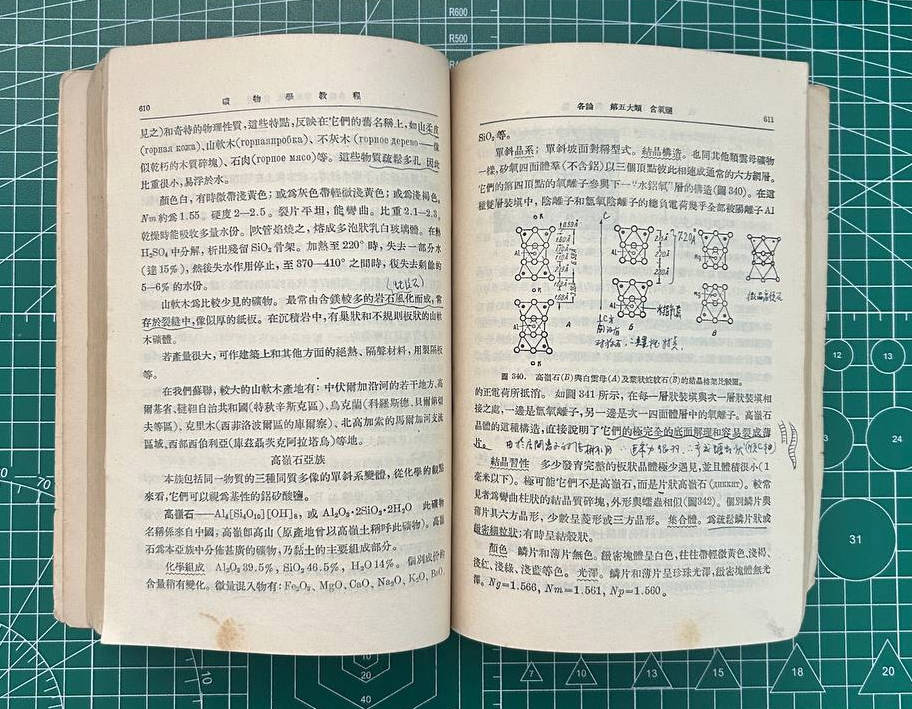 610
礦物學教程
見之)和奇特的物理性質,這些特點,反映在它們的舊名稱上,如山柔皮
(горная кожа)、山軟木(горнаяпробка)、不灰木(горное дерево——像
似乾朽的木質碎塊)、石肉(горное мясо)等。這些物質疏鬆多孔,因此
比重很小,易浮於水。
顏色白,有時微帶淺黃色;或爲灰色帶輕微淺黃色;或爲淺褐色。
Nm約爲1.55。硬度2—2.5。裂片平坦,能彎曲。比重2.1—2.3,
乾燥時能吸收多量水份。吹管焰燒之,熔成多泡狀乳白玻璃體。在熱
H₂SO₄中分解,析出殘留SiO₂骨架。加熱至220°時,失去一部分水
(達15%),然後失水作用停止,至370—410°之間時,復失去剩餘的
5—6%的水份。
山軟木爲比較少見的礦物。最常由含鎂較多的岩石風化而成,常
存於裂縫中,像似厚的紙板。在沉積岩中,有巢狀和不規則板狀的山軟
木礦體。
若產量很大,可作建築上和其他方面的絕熱、隔聲材料,用製隔板
等。
在我們蘇聯,較大的山軟木產地有:中伏爾加沿河的若干地方,高
爾基省、韃靼自治共和國(特秋辛斯克區)、烏克蘭(科羅斯德、貝爾
夫等區)、克里木(西菲洛波爾區的庫爾察)、北高加索的馬爾加河支流
區域、西部西伯利亞(庫茲聶茨克阿拉塔烏)等地。
高嶺石亞族
本族包括同一物質的三種同質多像的單斜系變體,從化學的觀點
來看,它們可以視爲基性的鋁矽酸鹽。
高嶺石——Al₄[Si₄O₁₀][OH]₈,或 Al₂O₃·2SiO₂·2H₂O 此礦物
名稱係來自中國,高嶺卽高山(原產地曾以高嶺土稱呼此礦物)。高嶺
石爲本亞族中分佈甚廣的礦物,乃黏土的主要組成部分。
化學組成 Al₂O₃ 39.5%,SiO₂ 46.5%,H₂O 14%。個別成份的
含量稍有變化。微量混入物有:Fe₂O₃、MgO、CaO、Na₂O、K₂O、BaO、
各論 第五大類 含氧鹽
611
SiO₂等。
單斜晶系;單斜坡面對稱型式。結晶構造。也同其他類雲母礦物
一樣,矽氧四面體羣(不含鋁)以三個頂點彼此相連成通常的六方網層。
它們的第四頂點的氧離子參與下一“水鋁氧”層的構造(圖340)。在這
種雙層裝填中,陰離子和氫氧陰離子的總負電荷幾乎全部被陽離子Al
圖 340. 高嶺石(B)與白雲母(A)及葉狀蛇紋石(B)的結晶格架比較圖。
的正電荷所抵消。如圖341所示,在每一層狀裝填與次一層狀裝填相
接之處,一邊是氫氧離子,另一邊是次一四面體層中的氧離子。高嶺石
晶體的這種構造,直接說明了它們的極完全的底面解理和容易裂成薄
片。
結晶習性 多少發育完整的板狀晶體極少遇見,並且體積很小(1
毫米以下)。極可能它們不是高嶺石,而是片狀高嶺石(диккит)。較常
見者爲彎曲柱狀的結晶質碎塊,外形與蠕蟲相似(圖342)。個別鱗片與
薄片具六方晶形,少數呈菱形或三方晶形。集合體。爲疏鬆鱗片狀或
緻密細粒狀;有時呈結殼狀。
顏色 鱗片和薄片無色。緻密塊體呈白色,往往帶輕微黃色、淺褐、
淺紅、淺綠、淺藍等色。光澤。鱗片和薄片呈珍珠光澤,緻密塊體無光
澤。Ng=1.566,Nm=1.561,Np=1.560。
R600
R500
12
13
31
7
10
15
18
20
10
40